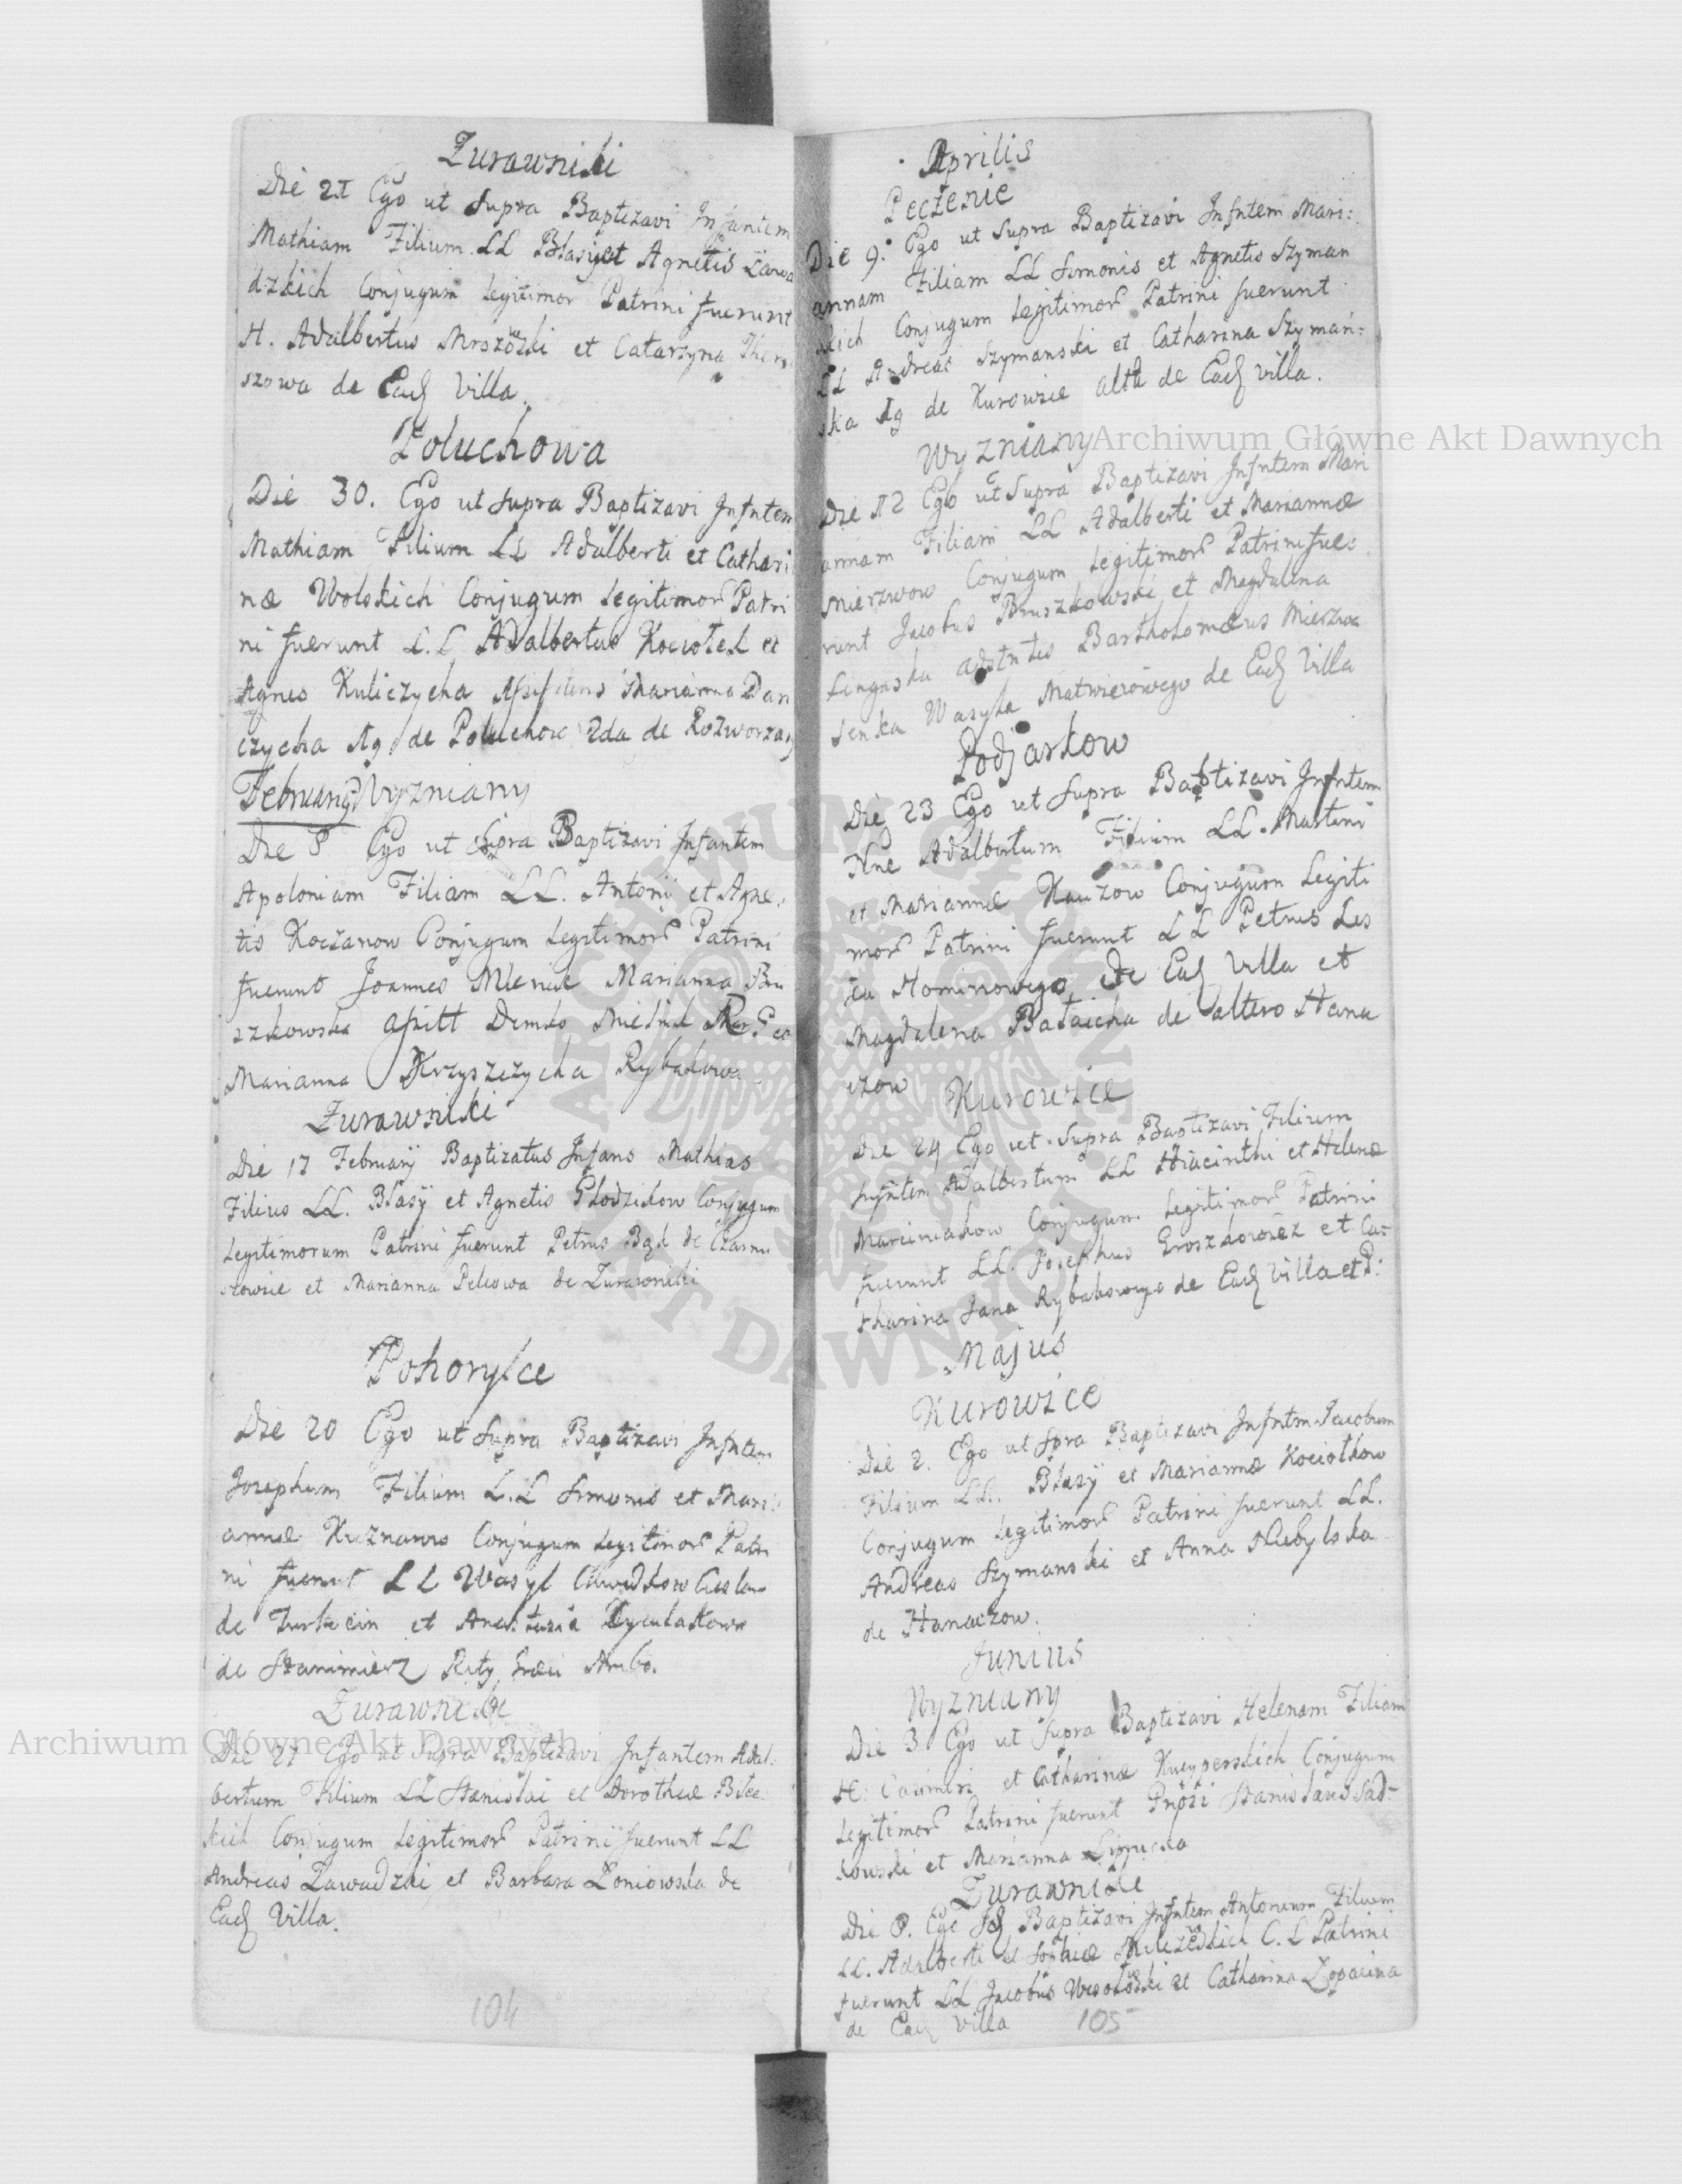 Zurawniki
Die 21 Ego ut Supra Baptizavi Infantem
Mathiam Filium LL Blasij et Agnetis Zawa
dzkich Conjugum legitimor Patrini fuerunt
H. Adalbertus Mrozowski et Catarzyna
szowa de Ead Villa.
Poluchowa
Die 30. Ego ut Supra Baptizavi Infntem
Mathiam Filium LL Adalberti et Cathari
næ Wolskich Conjugum Legitimor Patri
ni fuerunt L.L Adalbertus Kociołek et
Agnes Kuliczycha Marianna Dan
czycha Ag de Poluchow 2da de Rozworzan
Februarij Wyzniany
Die 8 Ego ut Supra Baptizavi Infantem
Apoloniam Filiam LL. Antonij et Agne
tis Koczanow Conjugum Legitimor Patrini
fuerunt Joannes Mlenik Marianna Bru
szkowska Demko Mielnik
Marianna Krzyszczycha Rybakowa
Zurawniki
Die 17 Februarij Baptizatus Infans Mathias
Filius LL. Blasij et Agnetis Głodzikow Conjugum
Legitimorum Patrini fuerunt Petrus Bąk de Czarnu
szowie et Marianna Pelcowa de Zurawniki
Pohorylce
Die 20 Ego ut Supra Baptizavi Infntem
Josephum Filium L.L Simonis et Mari
annæ Kuznarow Conjugum Legitimor Patri
ni fuerunt LL Wasyl
de Turkocin et Anastazia
de Stanimierz
Zurawniki
Die 27 Ego ut Supra Baptizavi Infantem Adal
bertum Filium LL Stanislai et Dorotheæ Bilec
kich Conjugum Legitimor Patrini fuerunt LL
Andreas Zawadzki et Barbara Łoniowska de
Ead Villa.
104
Aprilis
Peczenie
Die 9. Ego ut Supra Baptizavi Infntem Mari:
annam Filiam LL Simonis et Agnetis Szyman
skich Conjugum Legitimor Patrini fuerunt
LL Andreas Szymanski et Catharina Szymań:
ska Ag de Kurowice alta de Ead villa.
Wyzniany
Die 12 Ego ut Supra Baptizavi Infntem Mari
annam Filiam LL Adalberti et Mariannæ
Mierzwow Conjugum Legitimor Patrini fue:
runt Jacobus Bruszkowski et Magdalena
Lingaska Bartholomæus Mierzwa
Senka Wasyla Matwierowego de Ead Villa
Podjarkow
Die 23 Ego ut Supra Babtizavi Infntem
Nne Adalbertum Filium LL. Martini
et Mariannæ Kauzow Conjugum Legiti
mor Patrini fuerunt LL Petrus Les
ka Hominowego de Ead Villa et
Magdalena Bałaicha de altero Hana
czow
Kurowice
Die 24 Ego ut Supra Baptizavi Filium
Infntem Adalbertum LL Hiacinthi et Helenæ
Marciniakow Conjugum Legitimor Patrini
fuerunt LL. Josephus Groszkowsz et Ca-
tharina Jana Rybakowego de Ead Villa et P:
Majus
Kurowice
Die 2. Ego ut Spra Baptizavi Infntm Jacobum
Filium LL. Blasij et Mariannæ Kociołkow
Conjugum Legitimor Patrini fuerunt LL.
Andreas Szymanski et Anna Niebylska
de Hanaczow.
Junius
Wyzniany
Die 3 Ego ut Supra Baptizavi Helenam Filiam
H: Casimiri et Catharinæ Kucyperskich Conjugum
Legitimor Patrini fuerunt Stanislaus Sad-
kowski et Marianna Lipnicka
Zurawniki
Die 8. Ego Baptizavi Infntem Antonium Filium
LL. Adalberti et Sophiæ C. L Patrini
fuerunt LL Jacobus Wesołowski et Catharina Łopacina
de Ead Villa
105
Archiwum Główne Akt Dawnych
Archiwum Główne Akt Dawnych
ARCHIWUM GŁÓWNE AKT DAWNYCH